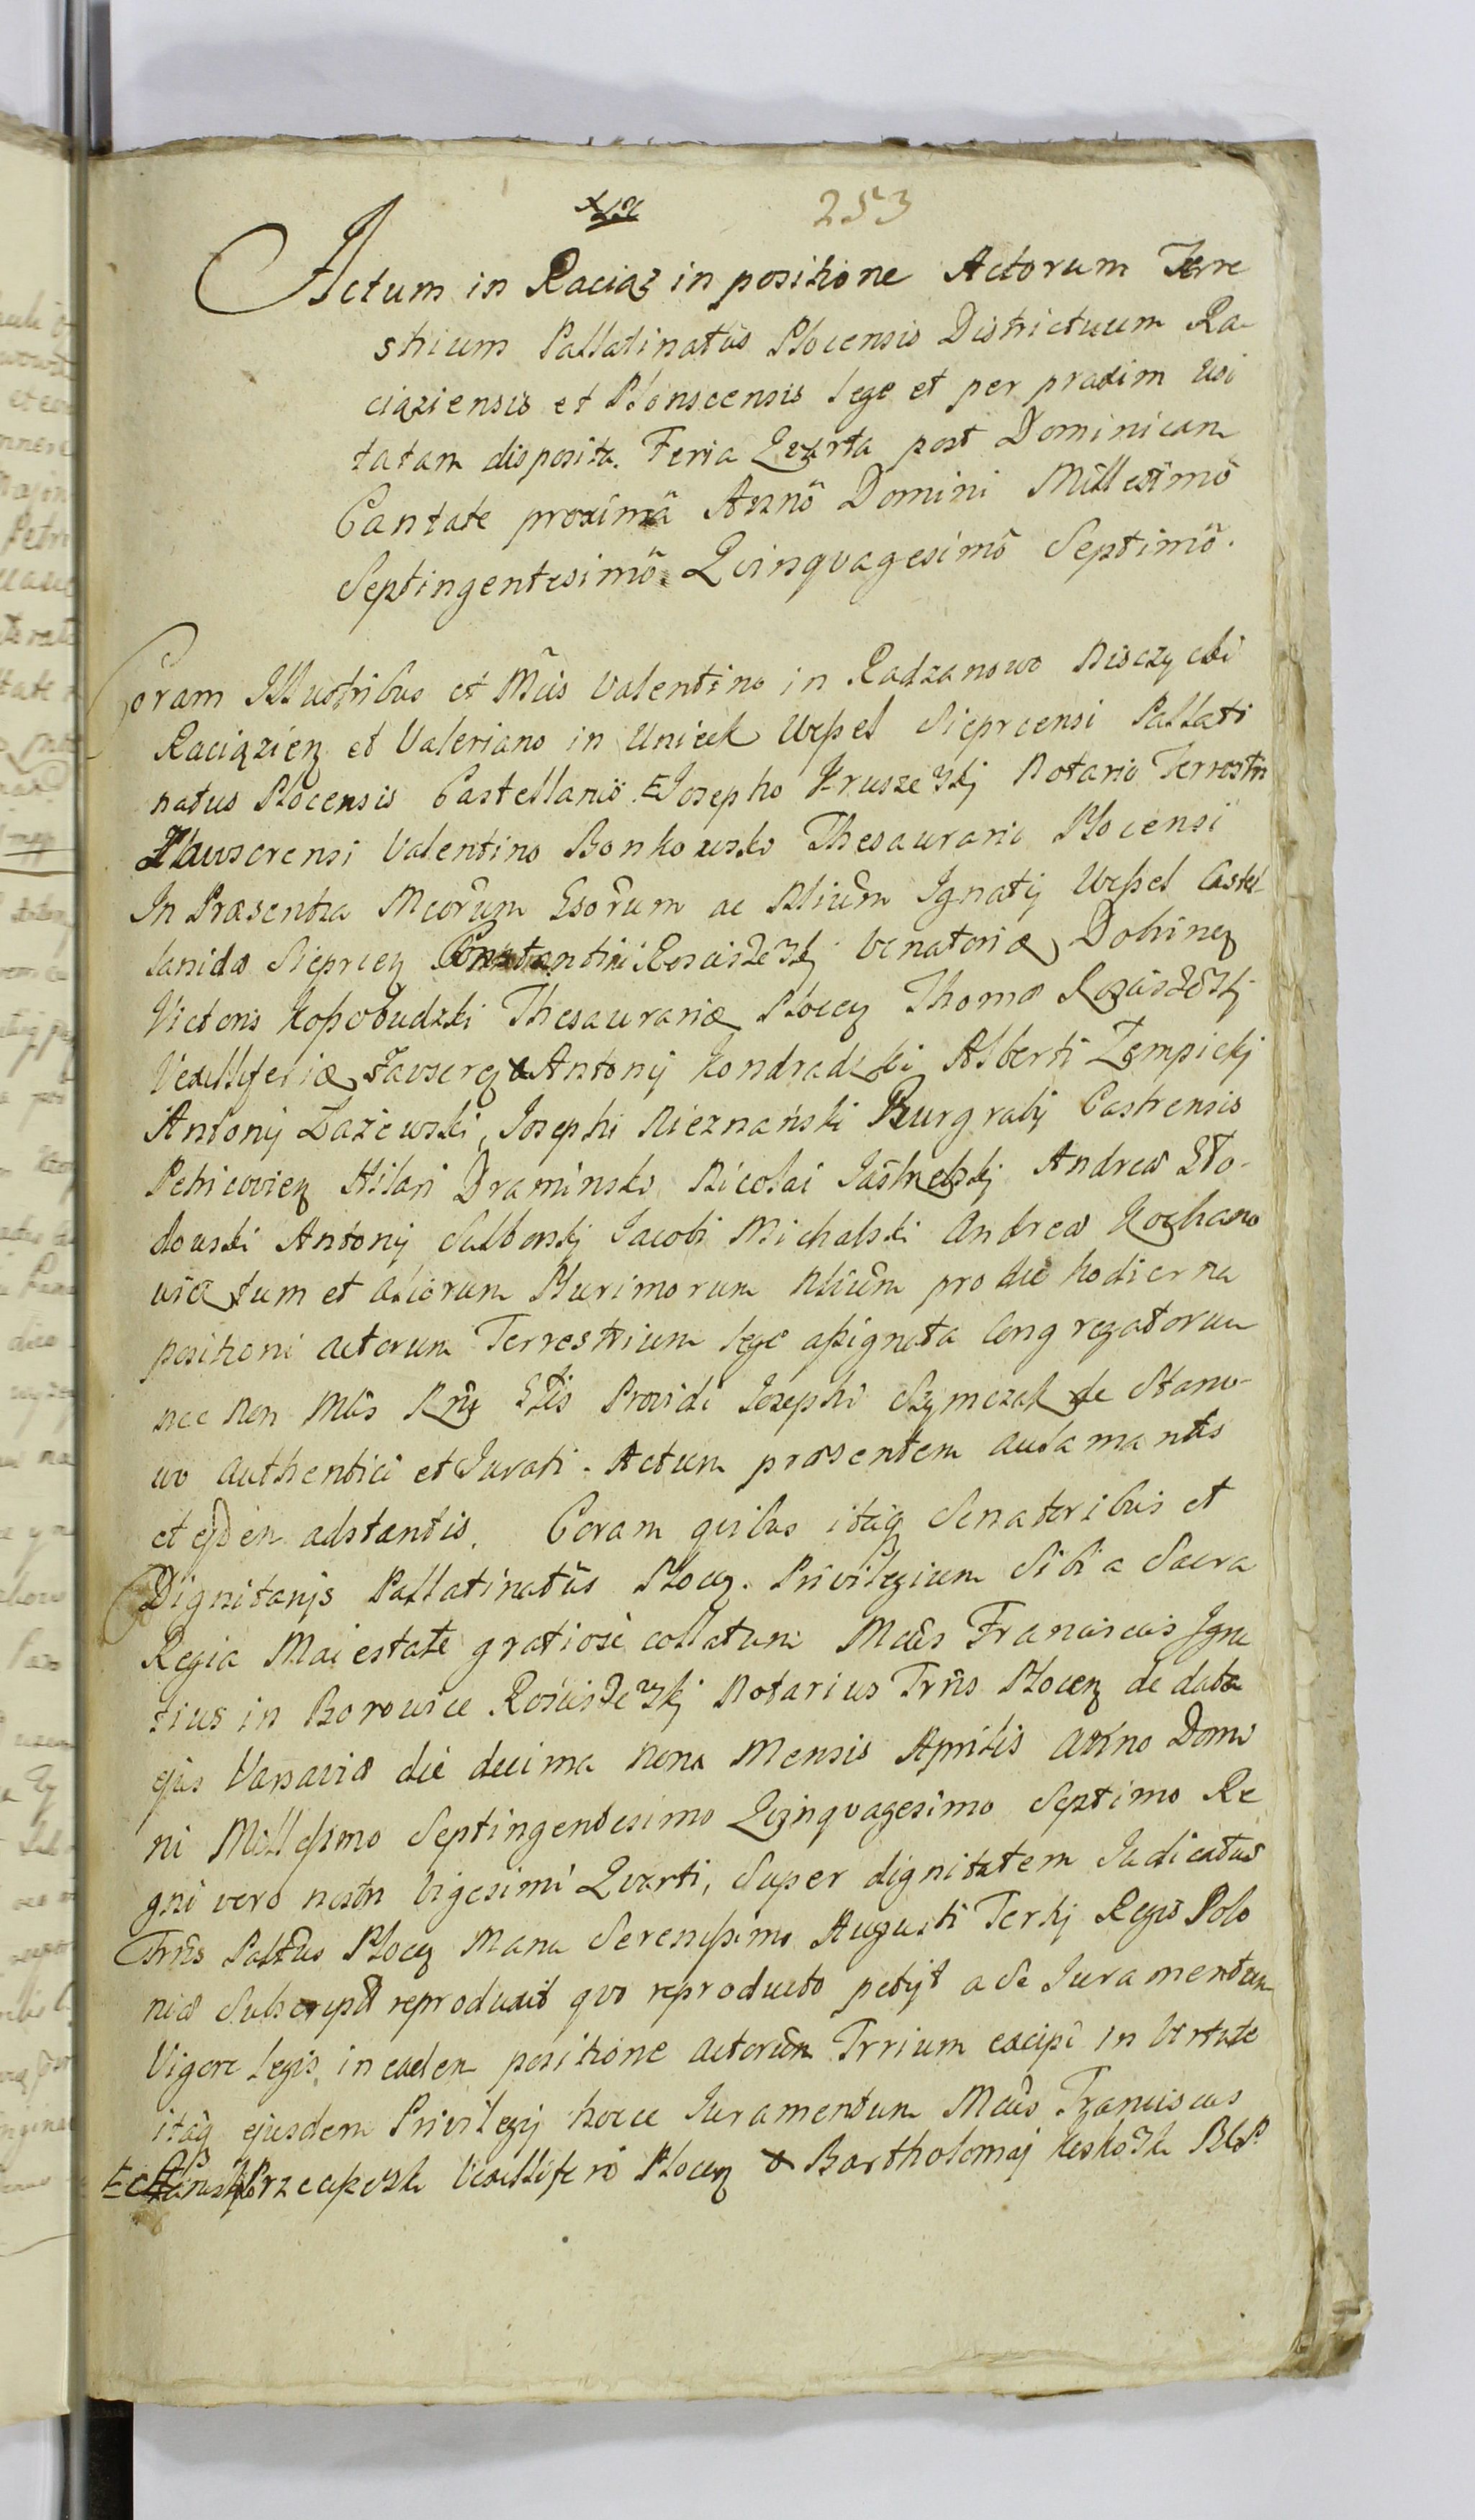 253
Actum in Raciąz in positione Actorum Terre
strium Pallatinatûs Plocensis Districtuum Ra-
ciąziensis et Plonscensis lege et per praxim usi
tatam disposita. Feria Qvarta post Dominicam
Cantate proximâ Annô Domini Millesimô
Septingentesimô Qvinqvagesimô Septimô.
Coram Illustribus et Mcis Valentino in Radzanowo Niszczycki
Raciązien et Valeriano in Unieck Weßel Sieprcensi Pallati
natus Plocensis Castellanis Josepho Kruszewskj Notario Terrestri
Zkawscrensi Valentino Bonkowski Thesaurario Plocensi
In Præsentia Mcorum Gsorum ac Nlium Ignatij Weßel Castel
lanidæ Sieprcen Constantini Rosciszewskj Venatoridæ Dobrinen
Victoris Kossobudzki Thesauraridæ Plocen Thomæ Rosciszewskj
Vexilliferidæ Zawscren Antonij Kondradzki, Alberti Zempickj
Antonij Łazewski, Josephi Nieznański Burgrabij Castrensis
Petricovien Hilari Draminski Nicolai Jastrzebskj Andreæ Sło-
dowski Antonij Sulborskj Jacobi Michalski Andreæ Kochano
tum et aliorum Plurimorum Nlium pro die hodierna
positioni actorum Terrestrium lege aßignata Congregatorum
nec non Mlis Rni Gńlis Providi Josephi Szymczak de Staro-
wo authentici et Jurati. Actum præsentem
et adstantis. Coram qvibus itaq Senatoribus et
Dignitarijs Pallatinatûs Plocen. Privilegium Sibi a Sacra
Regia Maiestate gratiosè collatum Mcus Franciscus Igna
tius in Borowice Rościszewskj Notarius Trris Plocen de data
ejus Varsaviæ die decima nona Mensis Aprilis anno Domi
ni Milleßimo Septingentesimo Qvinqvagesimo Septimo Re
gni vero nostri Vigesimi Qvarti, Super dignitatem Judicatus
Trris Palltus Plocen Manu Serenißimi Augusti Tertij Regis Polo
niæ Subscriptū reproduxit qvo reproducto petijt a se Juramentum
Vigore legis in eadem positione actorum Trrium excipi in Virtute
itaq ejusdem Privilegij hocce Juramentum Mcus Franciscus
Vexillifero Plocen & Bartholomæj